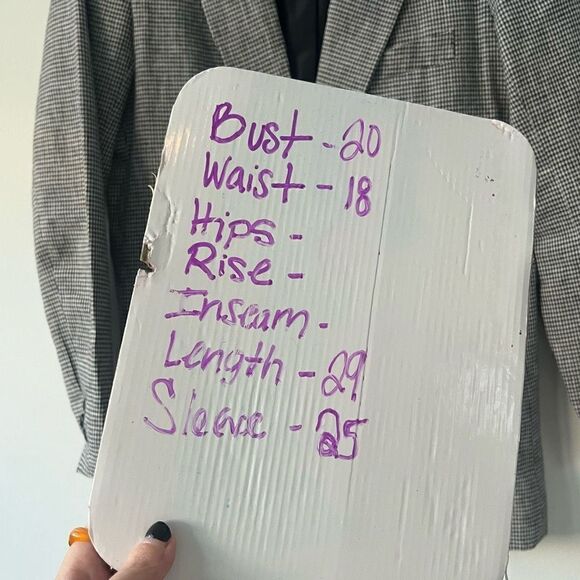 Bust - 20
Waist - 18
Hips -
Rise -
Inseam -
Length - 29
Sleeve - 25